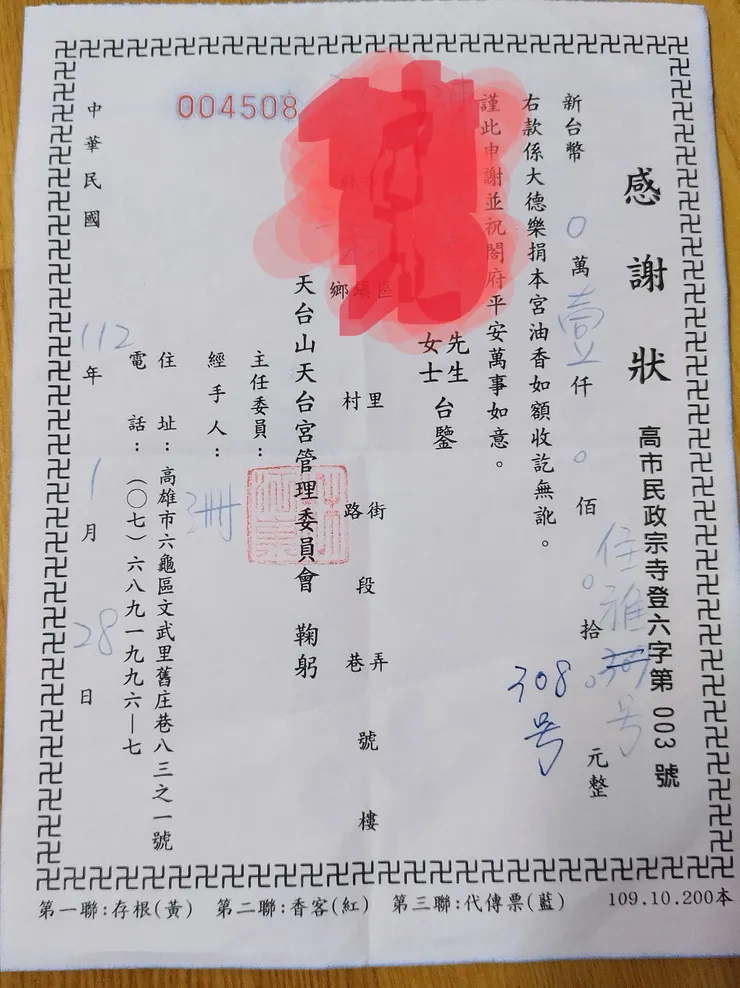 感謝狀
高市民政宗寺登六字第 003 號
住雅
号
308
号
新台幣 0 萬 壹 仟 0 佰 0 拾 0 元整
右款係大德樂捐本宮油香如額收訖無訛。
謹此申謝並祝閤府平安萬事如意。
先生
女士
台鑒
鄉鎮區
里
村
街
路
段
弄
巷
號
樓
004508
天台山天台宮管理委員會 鞠躬
主任委員：
經手人：
住址：高雄市六龜區文武里舊庄巷八三之一號
電話：(〇七)六八九一九九六—七
中華民國 112 年 1 月 28 日
第一聯:存根(黃) 第二聯:香客(紅) 第三聯:代傳票(藍) 109.10.200本